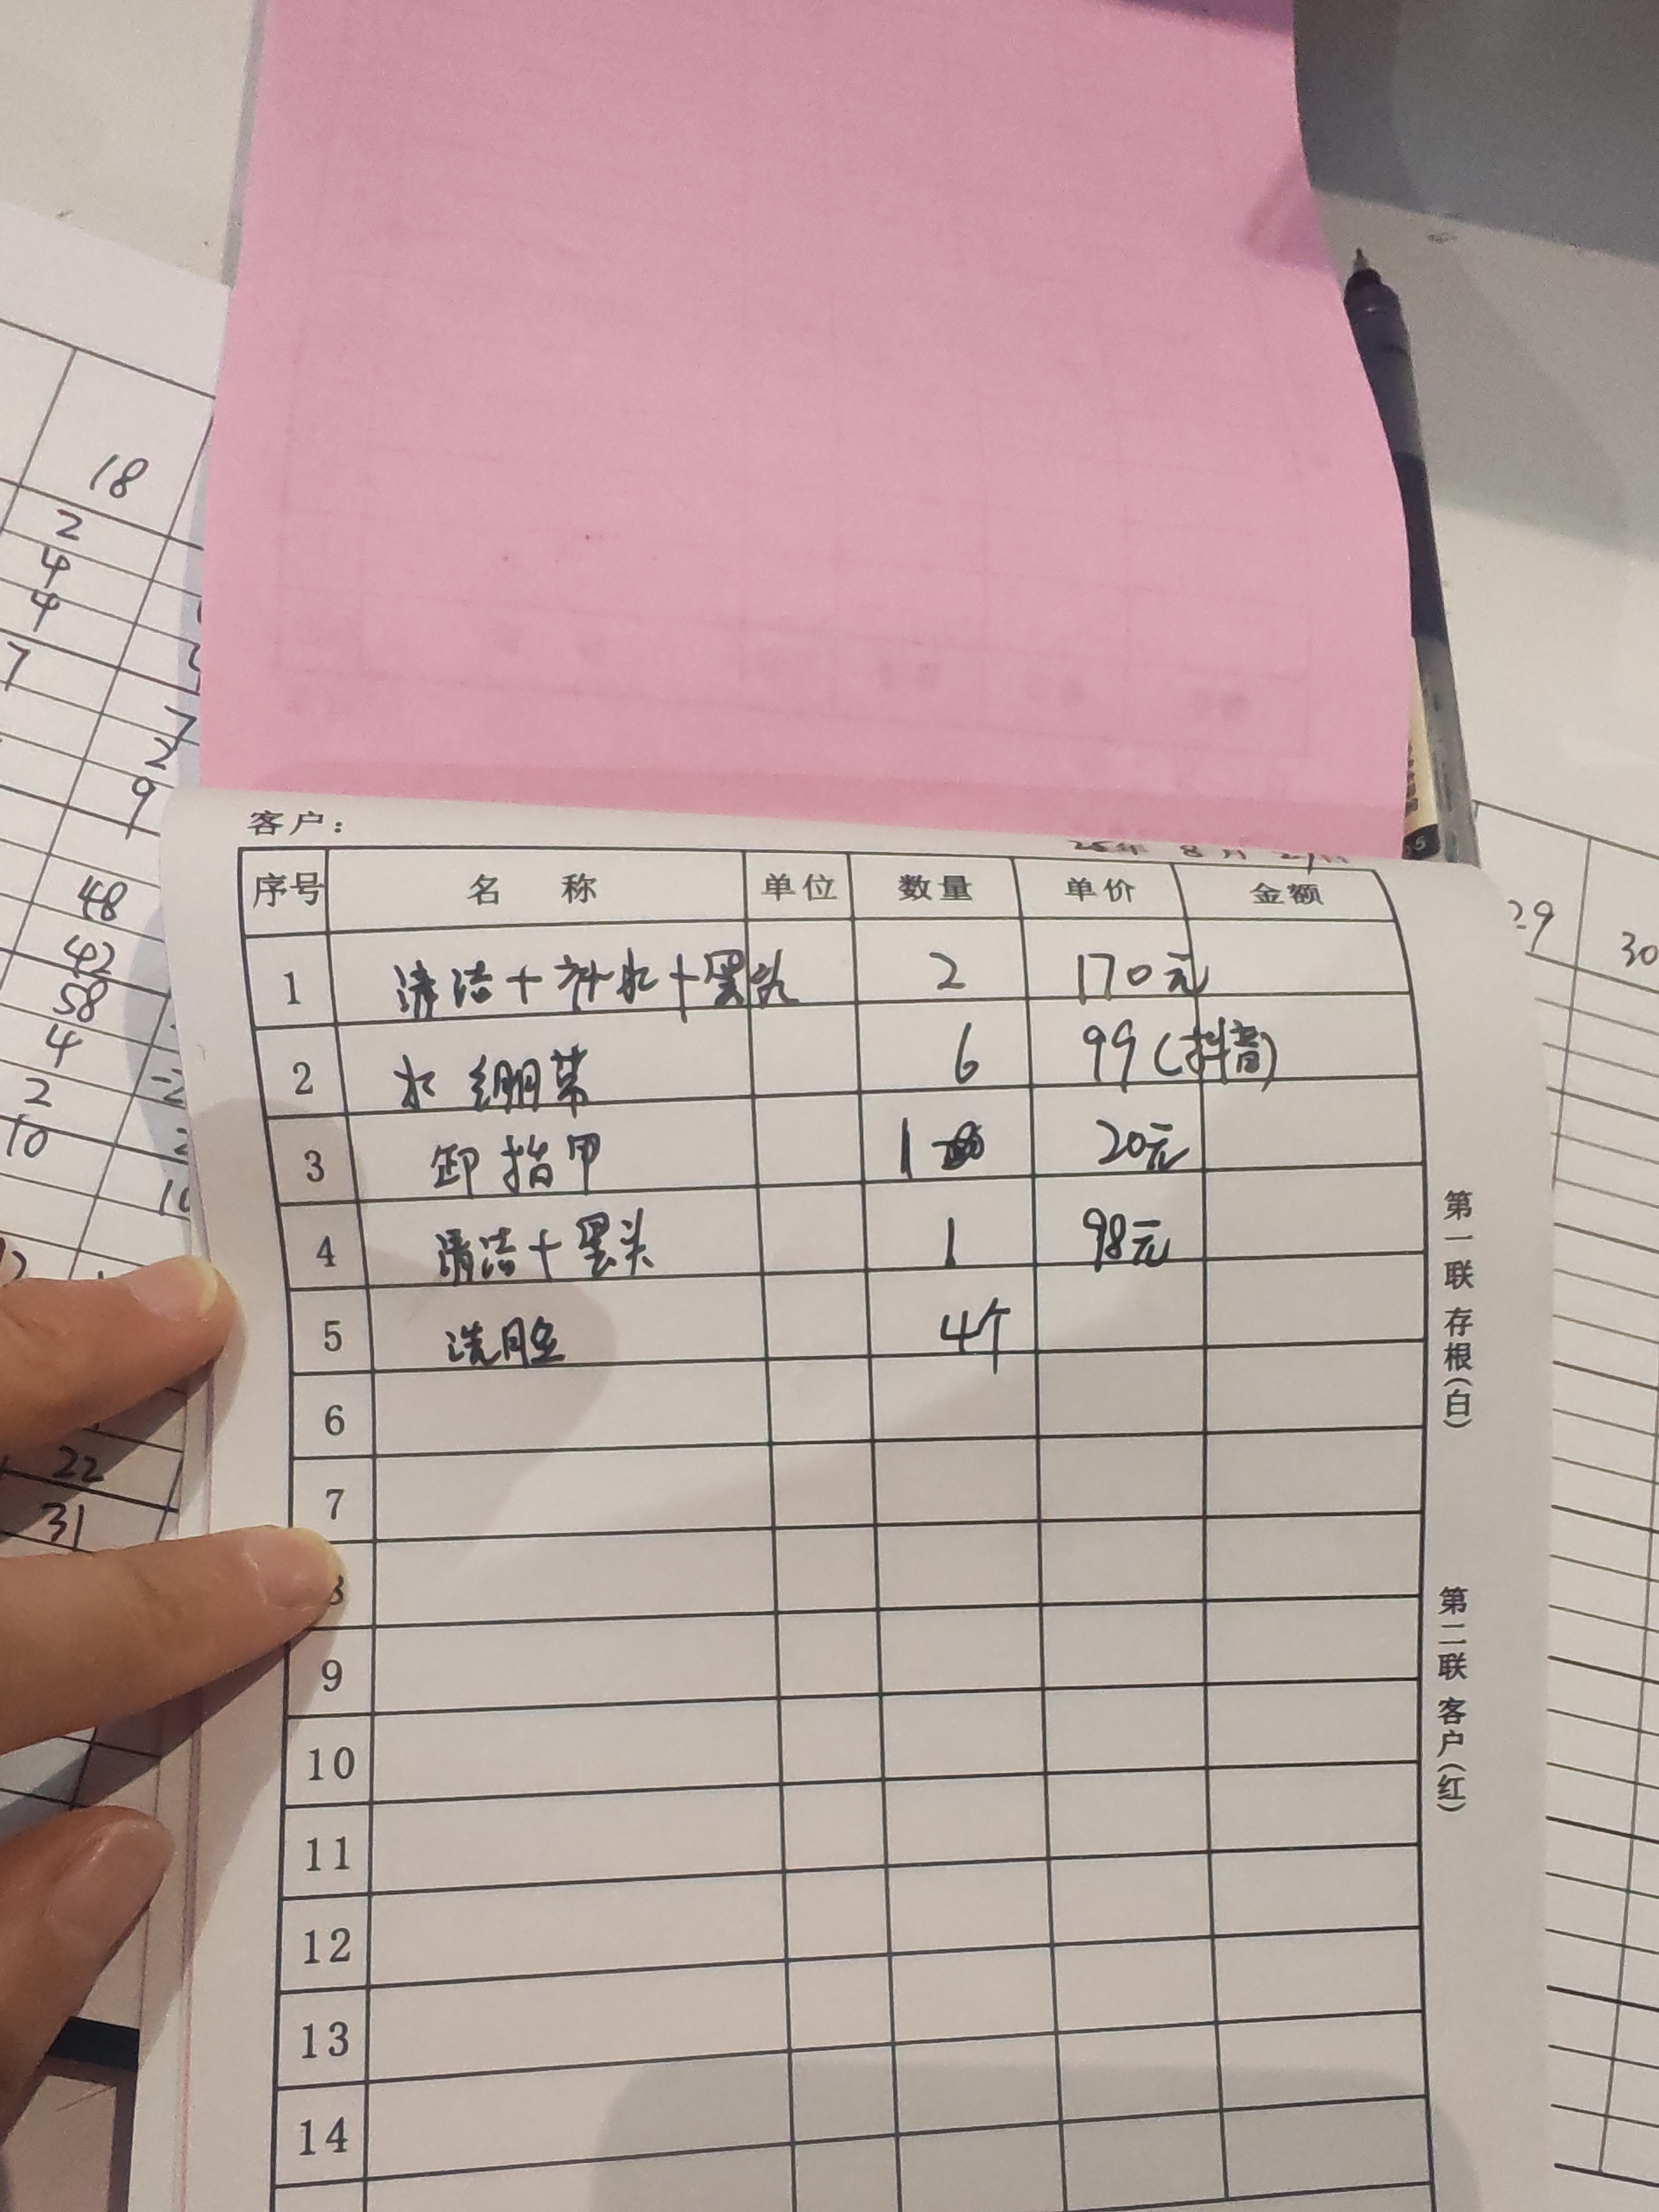 客户：
25年 8月
序号 名 称 单位 数量 单价 金额
1 清洁+补水+黑头 2 170元
2 水绷带 6 99(抖音)
3 卸指甲 1 20元
4 清洁+黑头 1 98元
5 洗脸 4个
6
7
8
9
10
11
12
13
14
第一联 存根(白)
第二联 客户(红)
18
2
4
4
7
7
2
9
48
42
58
4
2
10
22
31
29
30